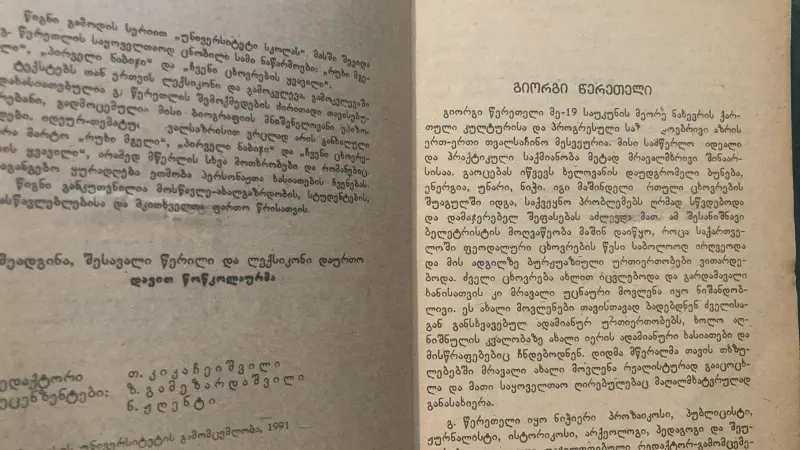 წიგნი გამოდის სერიით „უნივერსიტეტი სკოლას“. მასში შევიდა
გ. წერეთლის საყოველთაოდ ცნობილი სამი ნაწარმოები: „რუხი მგე-
ლი“, „პირველი ნაბიჯი“ და „ჩვენი ცხოვრების ყვავილი“.
ტექსტებს თან ერთვის ლექსიკონი და გამოკვლევა. გამოკვლევაში
დახასიათებულია გ. წერეთლის შემოქმედების ძირითადი თავისებუ-
რებანი, გადმოცემულია მისი ბიოგრაფიის მნიშვნელოვანი ეპიზო-
დები. იდეურ-თემატუ ვალსაზრისით ვრცლად არის განხილული
არა მარტო „რუხი მგელი“, „პირველი ნაბიჯი“ და „ჩვენი ცხოვრე-
ბის ყვავილი“, არამედ მწერლის სხვა მოთხრობები და რომანებიც.
განსაკუთრებული ყურადღება ეთმობა პერსონაჟთა ხასიათების ჩვენებას.
წიგნი განკუთვნილია მოსწავლე-ახალგაზრდობის, სტუდენტების,
მასწავლებლებისა და მკითხველთა ფართო წრისათვის.
შეადგინა, შესავალი წერილი და ლექსიკონი დაურთო
დავით წოწკოლაურმა
რედაქტორი თ. კიკაჩეიშვილი
რეცენზენტები: ზ. გამეზარდაშვილი
ნ. ჟღენტი
უნივერსიტეტის გამომცემლობა, 1991
ᲒᲘᲝᲠᲒᲘ ᲬᲔᲠᲔᲗᲔᲚᲘ
გიორგი წერეთელი მე-19 საუკუნის მეორე ნახევრის ქარ-
თული კულტურისა და პროგრესული საზ ოებრივი აზრის
ერთ-ერთი თვალსაჩინო მესვეურია. მისი სამწერლო იდეალი
და პრაქტიკული საქმიანობა მეტად მრავალმხრივი შინაარ-
სისაა. გაოცებას იწვევს ხელოვანის დაუდგრომელი ბუნება,
ენერგია, უნარი, ნიჭი. იგი მაშინდელი რთული ცხოვრების
შუაგულში იდგა, საქვეყნო პრობლემებს ღრმად სწვდებოდა
და დამაჯერებელ შეფასებას აძლევდა მათ. ამ შესანიშნავი
ბელეტრისტის მოღვაწეობა მაშინ დაიწყო, როცა საქართვე-
ლოში ფეოდალური ცხოვრების წესი საბოლოოდ ირღვეოდა
და მის ადგილზე ბურჟუაზიული ურთიერთობები ვითარდე-
ბოდა. ძველი ცხოვრება ახლით იცვლებოდა და გარდამავალი
ხანისათვის კი მრავალი უცნაური მოვლენა იყო ნიშანდობ-
ლივი. ეს ახალი მოვლენები თავისთავად ბადებდნენ ძველისა-
გან განსხვავებულ ადამიანურ ურთიერთობებს, ხოლო აღ-
ნიშნულის კვალობაზე ახალი იერის ადამიანური ხასიათები და
მისწრაფებებიც ჩნდებოდნენ. დიდმა მწერალმა თავის თხზუ-
ლებებში მრავალი ახალი მოვლენა რეალისტურად გააცოცხ-
ლა და მათი საყოველთაო ღირებულებაც მაღალმხატვრულად
განასახიერა.
გ. წერეთელი იყო ნიჭიერი პროზაიკოსი, პუბლიცისტი,
ჟურნალისტი, ისტორიკოსი, არქეოლოგი, პედაგოგი და შეუ-
რედაქტორ-გამომცემე-